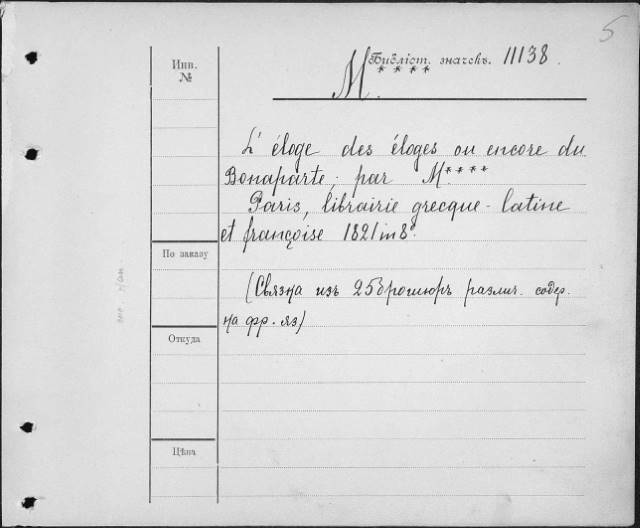 5
Инв.
№
Библіот. значекъ. 11138.
М.****
L'éloge des éloges ou encore du
Bonaparte; par M.****
Paris, librairie grecque-latine
et françoise 1821 in 8º.
По заказу
(Связка изъ 25 брошюръ различ. содер.
на фр. яз)
Откуда
Цѣна